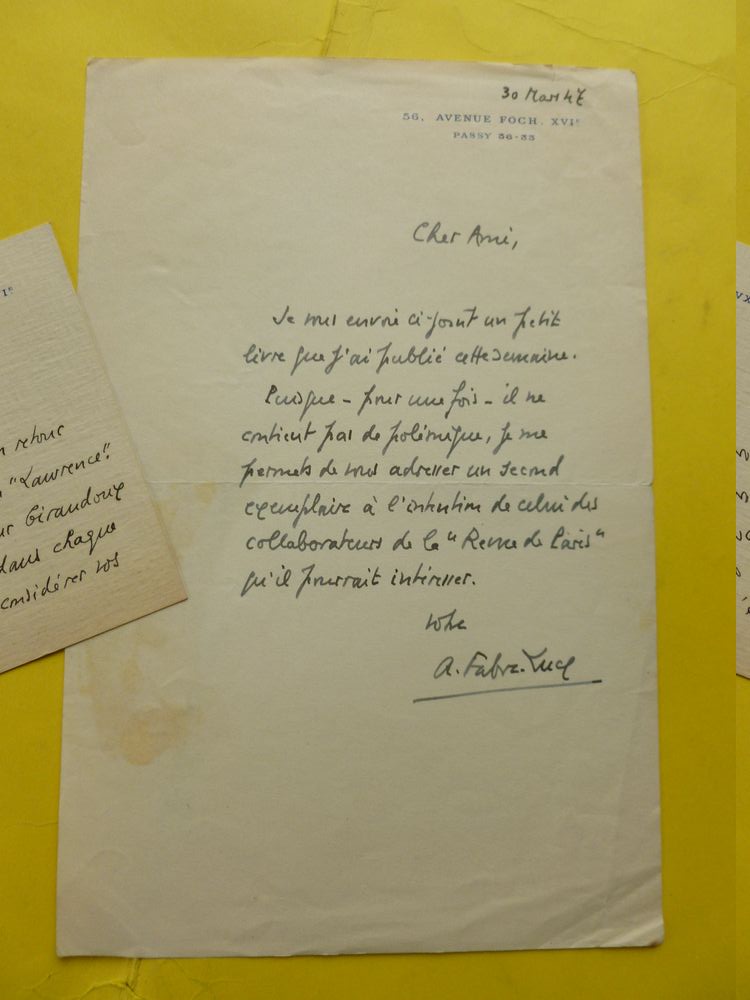 30 Mars 47
56, AVENUE FOCH. XVIᵉ
PASSY 56-35
Cher Ami,
Je vous envoie ci-joint un petit
livre que j'ai publié cette semaine.
Puisque - pour une fois - il ne
contient pas de polémique, je me
permets de vous adresser un second
exemplaire à l'intention de celui des
collaborateurs de la "Revue de Paris"
qu'il pourrait intéresser.
Votre
A. Fabre-Luce
Iᵉ
retour
"Lawrence".
Giraudoux
dans chaque
considérer vos